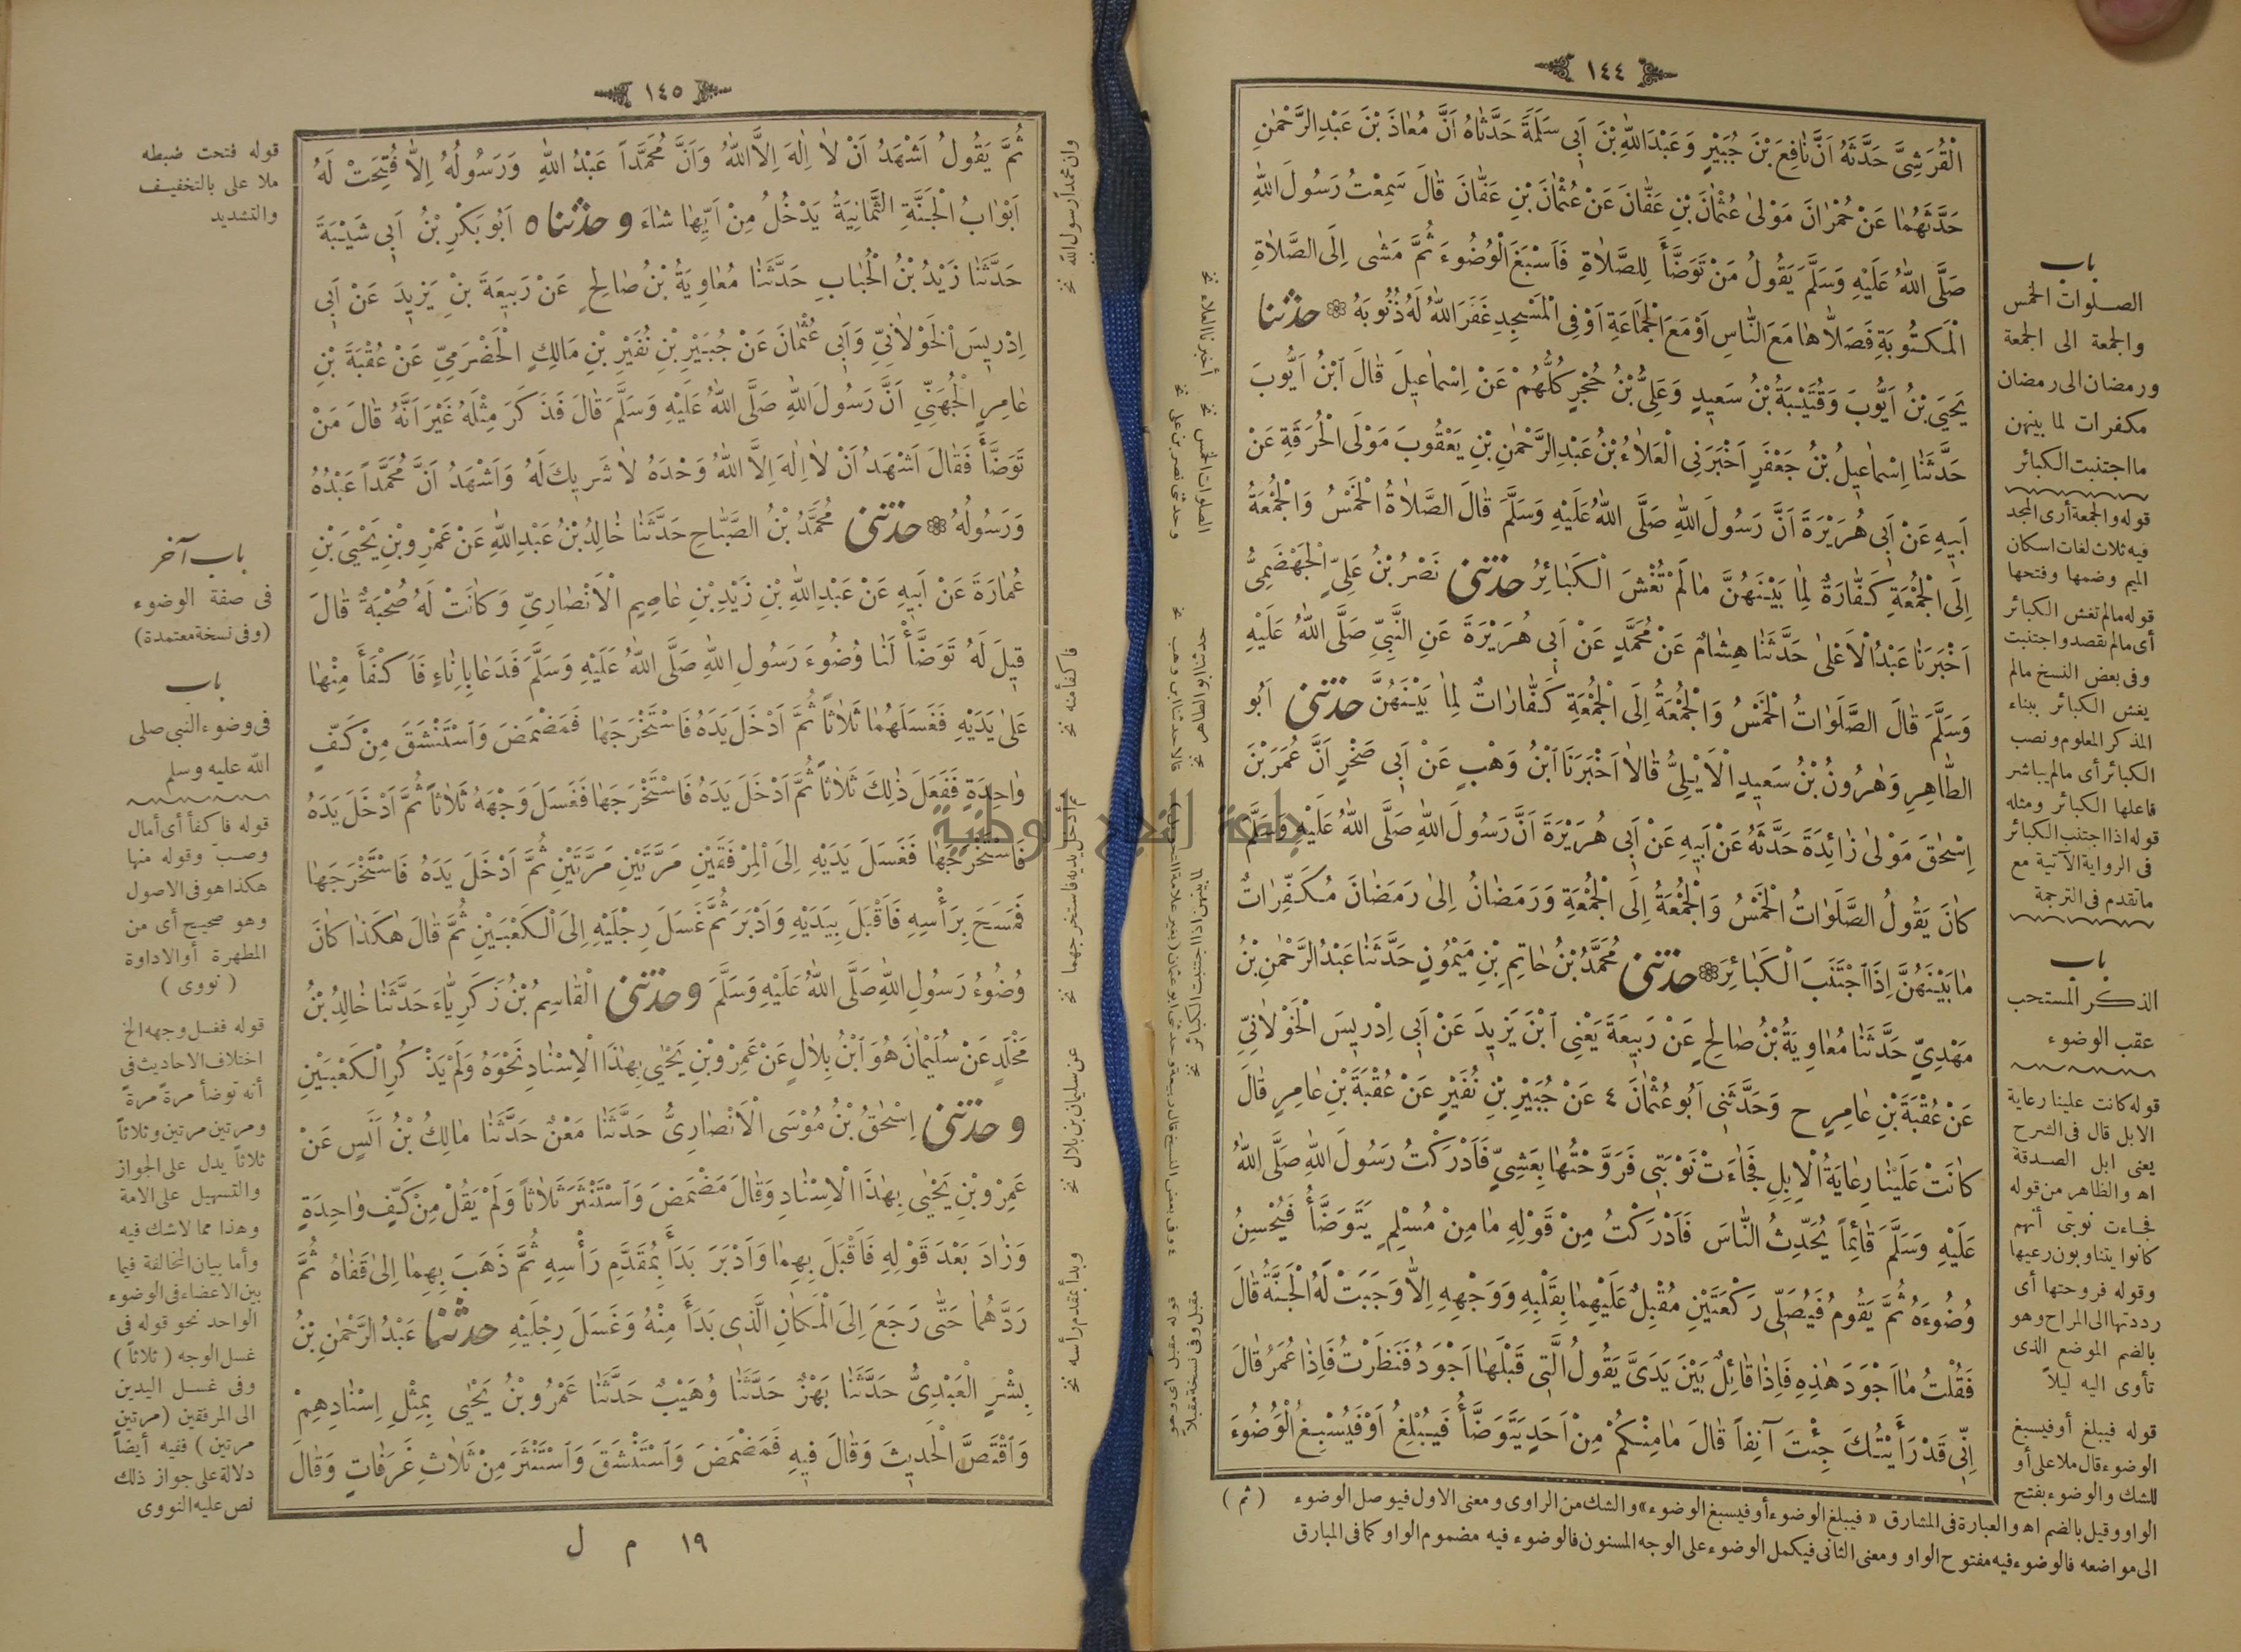 ١٤٤
الْقُرَشِىَّ حَدَّثَهُ اَنَّ نَافِعَ بْنَ جُبَيْرٍ وَعَبْدَ اللّٰهِ بْنَ اَبِى سَلَمَةَ حَدَّثَاهُ اَنَّ مُعَاذَ بْنَ عَبْدِ الرَّحْمٰنِ
حَدَّثَهُمَا عَنْ حُمْرَانَ مَوْلىٰ عُثْمَانَ بْنِ عَفَّانَ عَنْ عُثْمَانَ بْنِ عَفَّانَ قَالَ سَمِعْتُ رَسُولَ اللّٰهِ
صَلَّى اللّٰهُ عَلَيْهِ وَسَلَّمَ يَقُولُ مَنْ تَوَضَّأَ لِلصَّلَاةِ فَاَسْبَغَ الْوُضُوءَ ثُمَّ مَشٰى اِلَى الصَّلَاةِ
الْمَكْتُوبَةِ فَصَلَّاهَا مَعَ النَّاسِ اَوْ مَعَ الْجَمَاعَةِ اَوْ فِى الْمَسْجِدِ غَفَرَ اللّٰهُ لَهُ ذُنُوبَهُ ۞ حدثنا
يَحْيَى بْنُ اَيُّوبَ وَقُتَيْبَةُ بْنُ سَعِيدٍ وَعَلِىُّ بْنُ حُجْرٍ كُلُّهُمْ عَنْ اِسْمَاعِيلَ قَالَ ابْنُ اَيُّوبَ
حَدَّثَنَا اِسْمَاعِيلُ بْنُ جَعْفَرٍ اَخْبَرَنِى الْعَلَاءُ بْنُ عَبْدِ الرَّحْمٰنِ بْنِ يَعْقُوبَ مَوْلَى الْحُرَقَةِ عَنْ
اَبِيهِ عَنْ اَبِى هُرَيْرَةَ اَنَّ رَسُولَ اللّٰهِ صَلَّى اللّٰهُ عَلَيْهِ وَسَلَّمَ قَالَ الصَّلَاةُ الْخَمْسُ وَالْجُمُعَةُ
اِلَى الْجُمُعَةِ كَفَّارَةٌ لِمَا بَيْنَهُنَّ مَا لَمْ تُغْشَ الْكَبَائِرُ حدثنى نَصْرُ بْنُ عَلِىٍّ الْجَهْضَمِىُّ
اَخْبَرَنَا عَبْدُ الْاَعْلىٰ حَدَّثَنَا هِشَامٌ عَنْ مُحَمَّدٍ عَنْ اَبِى هُرَيْرَةَ عَنِ النَّبِىِّ صَلَّى اللّٰهُ عَلَيْهِ
وَسَلَّمَ قَالَ الصَّلَوَاتُ الْخَمْسُ وَالْجُمُعَةُ اِلَى الْجُمُعَةِ كَفَّارَاتٌ لِمَا بَيْنَهُنَّ حدثنى اَبُو
الطَّاهِرِ وَهٰرُونُ بْنُ سَعِيدٍ الْاَيْلِىُّ قَالَا اَخْبَرَنَا ابْنُ وَهْبٍ عَنْ اَبِى صَخْرٍ اَنَّ عُمَرَ بْنَ
اِسْحٰقَ مَوْلىٰ زَائِدَةَ حَدَّثَهُ عَنْ اَبِيهِ عَنْ اَبِى هُرَيْرَةَ اَنَّ رَسُولَ اللّٰهِ صَلَّى اللّٰهُ عَلَيْهِ وَسَلَّمَ
كَانَ يَقُولُ الصَّلَوَاتُ الْخَمْسُ وَالْجُمُعَةُ اِلَى الْجُمُعَةِ وَرَمَضَانُ اِلىٰ رَمَضَانَ مُكَفِّرَاتٌ
مَا بَيْنَهُنَّ اِذَا اجْتَنَبَ الْكَبَائِرَ ۞ حدثنى مُحَمَّدُ بْنُ حَاتِمِ بْنِ مَيْمُونٍ حَدَّثَنَا عَبْدُ الرَّحْمٰنِ بْنُ
مَهْدِىٍّ حَدَّثَنَا مُعَاوِيَةُ بْنُ صَالِحٍ عَنْ رَبِيعَةَ يَعْنِى ابْنَ يَزِيدَ عَنْ اَبِى اِدْرِيسَ الْخَوْلَانِىِّ
عَنْ عُقْبَةَ بْنِ عَامِرٍ ح وَحَدَّثَنِى اَبُو عُثْمَانَ ٤ عَنْ جُبَيْرِ بْنِ نُفَيْرٍ عَنْ عُقْبَةَ بْنِ عَامِرٍ قَالَ
كَانَتْ عَلَيْنَا رِعَايَةُ الْاِبِلِ فَجَاءَتْ نَوْبَتِى فَرَوَّحْتُهَا بِعَشِىٍّ فَاَدْرَكْتُ رَسُولَ اللّٰهِ صَلَّى اللّٰهُ
عَلَيْهِ وَسَلَّمَ قَائِمًا يُحَدِّثُ النَّاسَ فَاَدْرَكْتُ مِنْ قَوْلِهِ مَا مِنْ مُسْلِمٍ يَتَوَضَّأُ فَيُحْسِنُ
وُضُوءَهُ ثُمَّ يَقُومُ فَيُصَلِّى رَكْعَتَيْنِ مُقْبِلٌ عَلَيْهِمَا بِقَلْبِهِ وَوَجْهِهِ اِلَّا وَجَبَتْ لَهُ الْجَنَّةُ قَالَ
فَقُلْتُ مَا اَجْوَدَ هٰذِهِ فَاِذَا قَائِلٌ بَيْنَ يَدَىَّ يَقُولُ الَّتِى قَبْلَهَا اَجْوَدُ فَنَظَرْتُ فَاِذَا عُمَرُ قَالَ
اِنِّى قَدْ رَأَيْتُكَ جِئْتَ آنِفًا قَالَ مَا مِنْكُمْ مِنْ اَحَدٍ يَتَوَضَّأُ فَيُبْلِغُ اَوْ فَيُسْبِغُ الْوَضُوءَ
باب
الصلوات الخمس
والجمعة الى الجمعة
ورمضان الى رمضان
مكفرات لما بينهن
ما اجتنبت الكبائر
قوله والجمعة أرى المجد
فيه ثلاث لغات اسكان
الميم وضمها وفتحها
قوله مالم تغش الكبائر
أى مالم يقصد واجتنبت
وفى بعض النسخ مالم
يغش الكبائر ببناء
المذكر المعلوم ونصب
الكبائر أى مالم يباشر
فاعلها الكبائر ومثله
قوله اذا اجتنب الكبائر
فى الرواية الآتية مع
ماتقدم فى الترجمة
باب
الذكر المستحب
عقب الوضوء
قوله كانت علينا رعاية
الابل قال فى الشرح
يعنى ابل الصدقة
اه والظاهر من قوله
فجاءت نوبتى أنهم
كانوا يتناوبون رعيها
وقوله فروحتها أى
رددتها الى المراح وهو
بالضم الموضع الذى
تأوى اليه ليلاً
قوله فيبلغ أو فيسبغ
الوضوء قال ملا على أو
للشك والوضوء بفتح
الواو وقيل بالضم اه والعبارة فى المشارق « فيبلغ الوضوء أو فيسبغ الوضوء » والشك من الراوى ومعنى الاول فيوصل الوضوء ( ثم )
الى مواضعه فالوضوء فيه مفتوح الواو ومعنى الثانى فيكمل الوضوء على الوجه المسنون فالوضوء فيه مضموم الواو كما فى المبارق
أخبرنا العلاء نخ
الصلوات الخمس نخ
وحدثنى نصر بن على نخ
حدثنا أبو الطاهر نخ
قالا حدثنا ابن وهب نخ
لما بينهن اذا اجتنبت الكبائر نخ
مقبل وفى نسخة مقبلاً
١٤٥
ثُمَّ يَقُولُ اَشْهَدُ اَنْ لَا اِلٰهَ اِلَّا اللّٰهُ وَاَنَّ مُحَمَّدًا عَبْدُ اللّٰهِ وَرَسُولُهُ اِلَّا فُتِحَتْ لَهُ
اَبْوَابُ الْجَنَّةِ الثَّمَانِيَةُ يَدْخُلُ مِنْ اَيِّهَا شَاءَ وحدثناه اَبُو بَكْرِ بْنُ اَبِى شَيْبَةَ
حَدَّثَنَا زَيْدُ بْنُ الْحُبَابِ حَدَّثَنَا مُعَاوِيَةُ بْنُ صَالِحٍ عَنْ رَبِيعَةَ بْنِ يَزِيدَ عَنْ اَبِى
اِدْرِيسَ الْخَوْلَانِىِّ وَاَبِى عُثْمَانَ عَنْ جُبَيْرِ بْنِ نُفَيْرِ بْنِ مَالِكٍ الْحَضْرَمِىِّ عَنْ عُقْبَةَ بْنِ
عَامِرٍ الْجُهَنِىِّ اَنَّ رَسُولَ اللّٰهِ صَلَّى اللّٰهُ عَلَيْهِ وَسَلَّمَ قَالَ فَذَكَرَ مِثْلَهُ غَيْرَ اَنَّهُ قَالَ مَنْ
تَوَضَّأَ فَقَالَ اَشْهَدُ اَنْ لَا اِلٰهَ اِلَّا اللّٰهُ وَحْدَهُ لَا شَرِيكَ لَهُ وَاَشْهَدُ اَنَّ مُحَمَّدًا عَبْدُهُ
وَرَسُولُهُ ۞ حدثنى مُحَمَّدُ بْنُ الصَّبَّاحِ حَدَّثَنَا خَالِدُ بْنُ عَبْدِ اللّٰهِ عَنْ عَمْرِو بْنِ يَحْيَى بْنِ
عُمَارَةَ عَنْ اَبِيهِ عَنْ عَبْدِ اللّٰهِ بْنِ زَيْدِ بْنِ عَاصِمٍ الْاَنْصَارِىِّ وَكَانَتْ لَهُ صُحْبَةٌ قَالَ
قِيلَ لَهُ تَوَضَّأْ لَنَا وُضُوءَ رَسُولِ اللّٰهِ صَلَّى اللّٰهُ عَلَيْهِ وَسَلَّمَ فَدَعَا بِاِنَاءٍ فَاَكْفَأَ مِنْهَا
عَلىٰ يَدَيْهِ فَغَسَلَهُمَا ثَلَاثًا ثُمَّ اَدْخَلَ يَدَهُ فَاسْتَخْرَجَهَا فَمَضْمَضَ وَاسْتَنْشَقَ مِنْ كَفٍّ
وَاحِدَةٍ فَفَعَلَ ذٰلِكَ ثَلَاثًا ثُمَّ اَدْخَلَ يَدَهُ فَاسْتَخْرَجَهَا فَغَسَلَ وَجْهَهُ ثَلَاثًا ثُمَّ اَدْخَلَ يَدَهُ
فَاسْتَخْرَجَهَا فَغَسَلَ يَدَيْهِ اِلىَ الْمِرْفَقَيْنِ مَرَّتَيْنِ مَرَّتَيْنِ ثُمَّ اَدْخَلَ يَدَهُ فَاسْتَخْرَجَهَا
فَمَسَحَ بِرَأْسِهِ فَاَقْبَلَ بِيَدَيْهِ وَاَدْبَرَ ثُمَّ غَسَلَ رِجْلَيْهِ اِلىَ الْكَعْبَيْنِ ثُمَّ قَالَ هٰكَذَا كَانَ
وُضُوءُ رَسُولِ اللّٰهِ صَلَّى اللّٰهُ عَلَيْهِ وَسَلَّمَ وحدثنى الْقَاسِمُ بْنُ زَكَرِيَّاءَ حَدَّثَنَا خَالِدُ بْنُ
مَخْلَدٍ عَنْ سُلَيْمَانَ هُوَ ابْنُ بِلَالٍ عَنْ عَمْرِو بْنِ يَحْيٰى بِهٰذَا الْاِسْنَادِ نَحْوَهُ وَلَمْ يَذْكُرِ الْكَعْبَيْنِ
وحدثنى اِسْحٰقُ بْنُ مُوسَى الْاَنْصَارِىُّ حَدَّثَنَا مَعْنٌ حَدَّثَنَا مَالِكُ بْنُ اَنَسٍ عَنْ
عَمْرِو بْنِ يَحْيٰى بِهٰذَا الْاِسْنَادِ وَقَالَ مَضْمَضَ وَاسْتَنْثَرَ ثَلَاثًا وَلَمْ يَقُلْ مِنْ كَفٍّ وَاحِدَةٍ
وَزَادَ بَعْدَ قَوْلِهِ فَاَقْبَلَ بِهِمَا وَاَدْبَرَ بَدَأَ بِمُقَدَّمِ رَأْسِهِ ثُمَّ ذَهَبَ بِهِمَا اِلىٰ قَفَاهُ ثُمَّ
رَدَّهُمَا حَتّٰى رَجَعَ اِلىَ الْمَكَانِ الَّذِى بَدَأَ مِنْهُ وَغَسَلَ رِجْلَيْهِ حدثنا عَبْدُ الرَّحْمٰنِ بْنُ
بِشْرٍ الْعَبْدِىُّ حَدَّثَنَا بَهْزٌ حَدَّثَنَا وُهَيْبٌ حَدَّثَنَا عَمْرُو بْنُ يَحْيٰى بِمِثْلِ اِسْنَادِهِمْ
وَاقْتَصَّ الْحَدِيثَ وَقَالَ فِيهِ فَمَضْمَضَ وَاسْتَنْشَقَ وَاسْتَنْثَرَ مِنْ ثَلَاثِ غَرَفَاتٍ وَقَالَ
وان محمداً رسول الله نخ
فاكفأ منه نخ
ثم أدخل يديه فاستخرجهما نخ
عن سليمان بن بلال نخ
وبدأ بمقدم رأسه نخ
قوله فتحت ضبطه
ملا على بالتخفيف
والتشديد
باب آخر
فى صفة الوضوء
(وفى نسخة معتمدة)
باب
فى وضوء النبى صلى
الله عليه وسلم
قوله فاكفأ أى أمال
وصبّ وقوله منها
هكذا هو فى الاصول
وهو صحيح أى من
المطهرة أو الاداوة
( نووى )
قوله فغسل وجهه الخ
اختلاف الاحاديث فى
أنه توضأ مرةً مرةً
ومرتين مرتين وثلاثاً
ثلاثاً يدل على الجواز
والتسهيل على الامة
وهذا مما لاشك فيه
وأما بيان المخالفة فيما
بين الاعضاء فى الوضوء
الواحد نحو قوله فى
غسل الوجه ( ثلاثاً )
وفى غسل اليدين
الى المرفقين (مرتين
مرتين) ففيه أيضاً
دلالة على جواز ذلك
نص عليه النووى
١٩ م ل
جامعة النجاح الوطنية